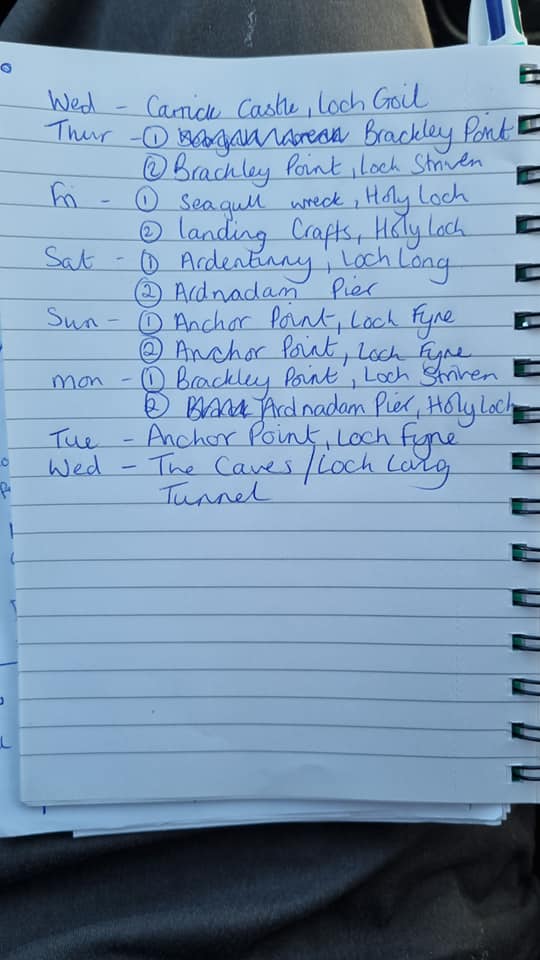 Wed - Carrick Castle, Loch Goil
Thur - ① Brackley Point
② Brackley Point, Loch Striven
Fri - ① Seagull wreck, Holy Loch
② landing Crafts, Holy Loch
Sat - ① Ardentinny, Loch Long
② Ardnadam Pier
Sun - ① Anchor Point, Loch Fyne
② Anchor Point, Loch Fyne
mon - ① Brackley Point, Loch Striven
② Ardnadam Pier, Holy Loch
Tue - Anchor Point, Loch Fyne
Wed - The Caves / Loch Long
Tunnel